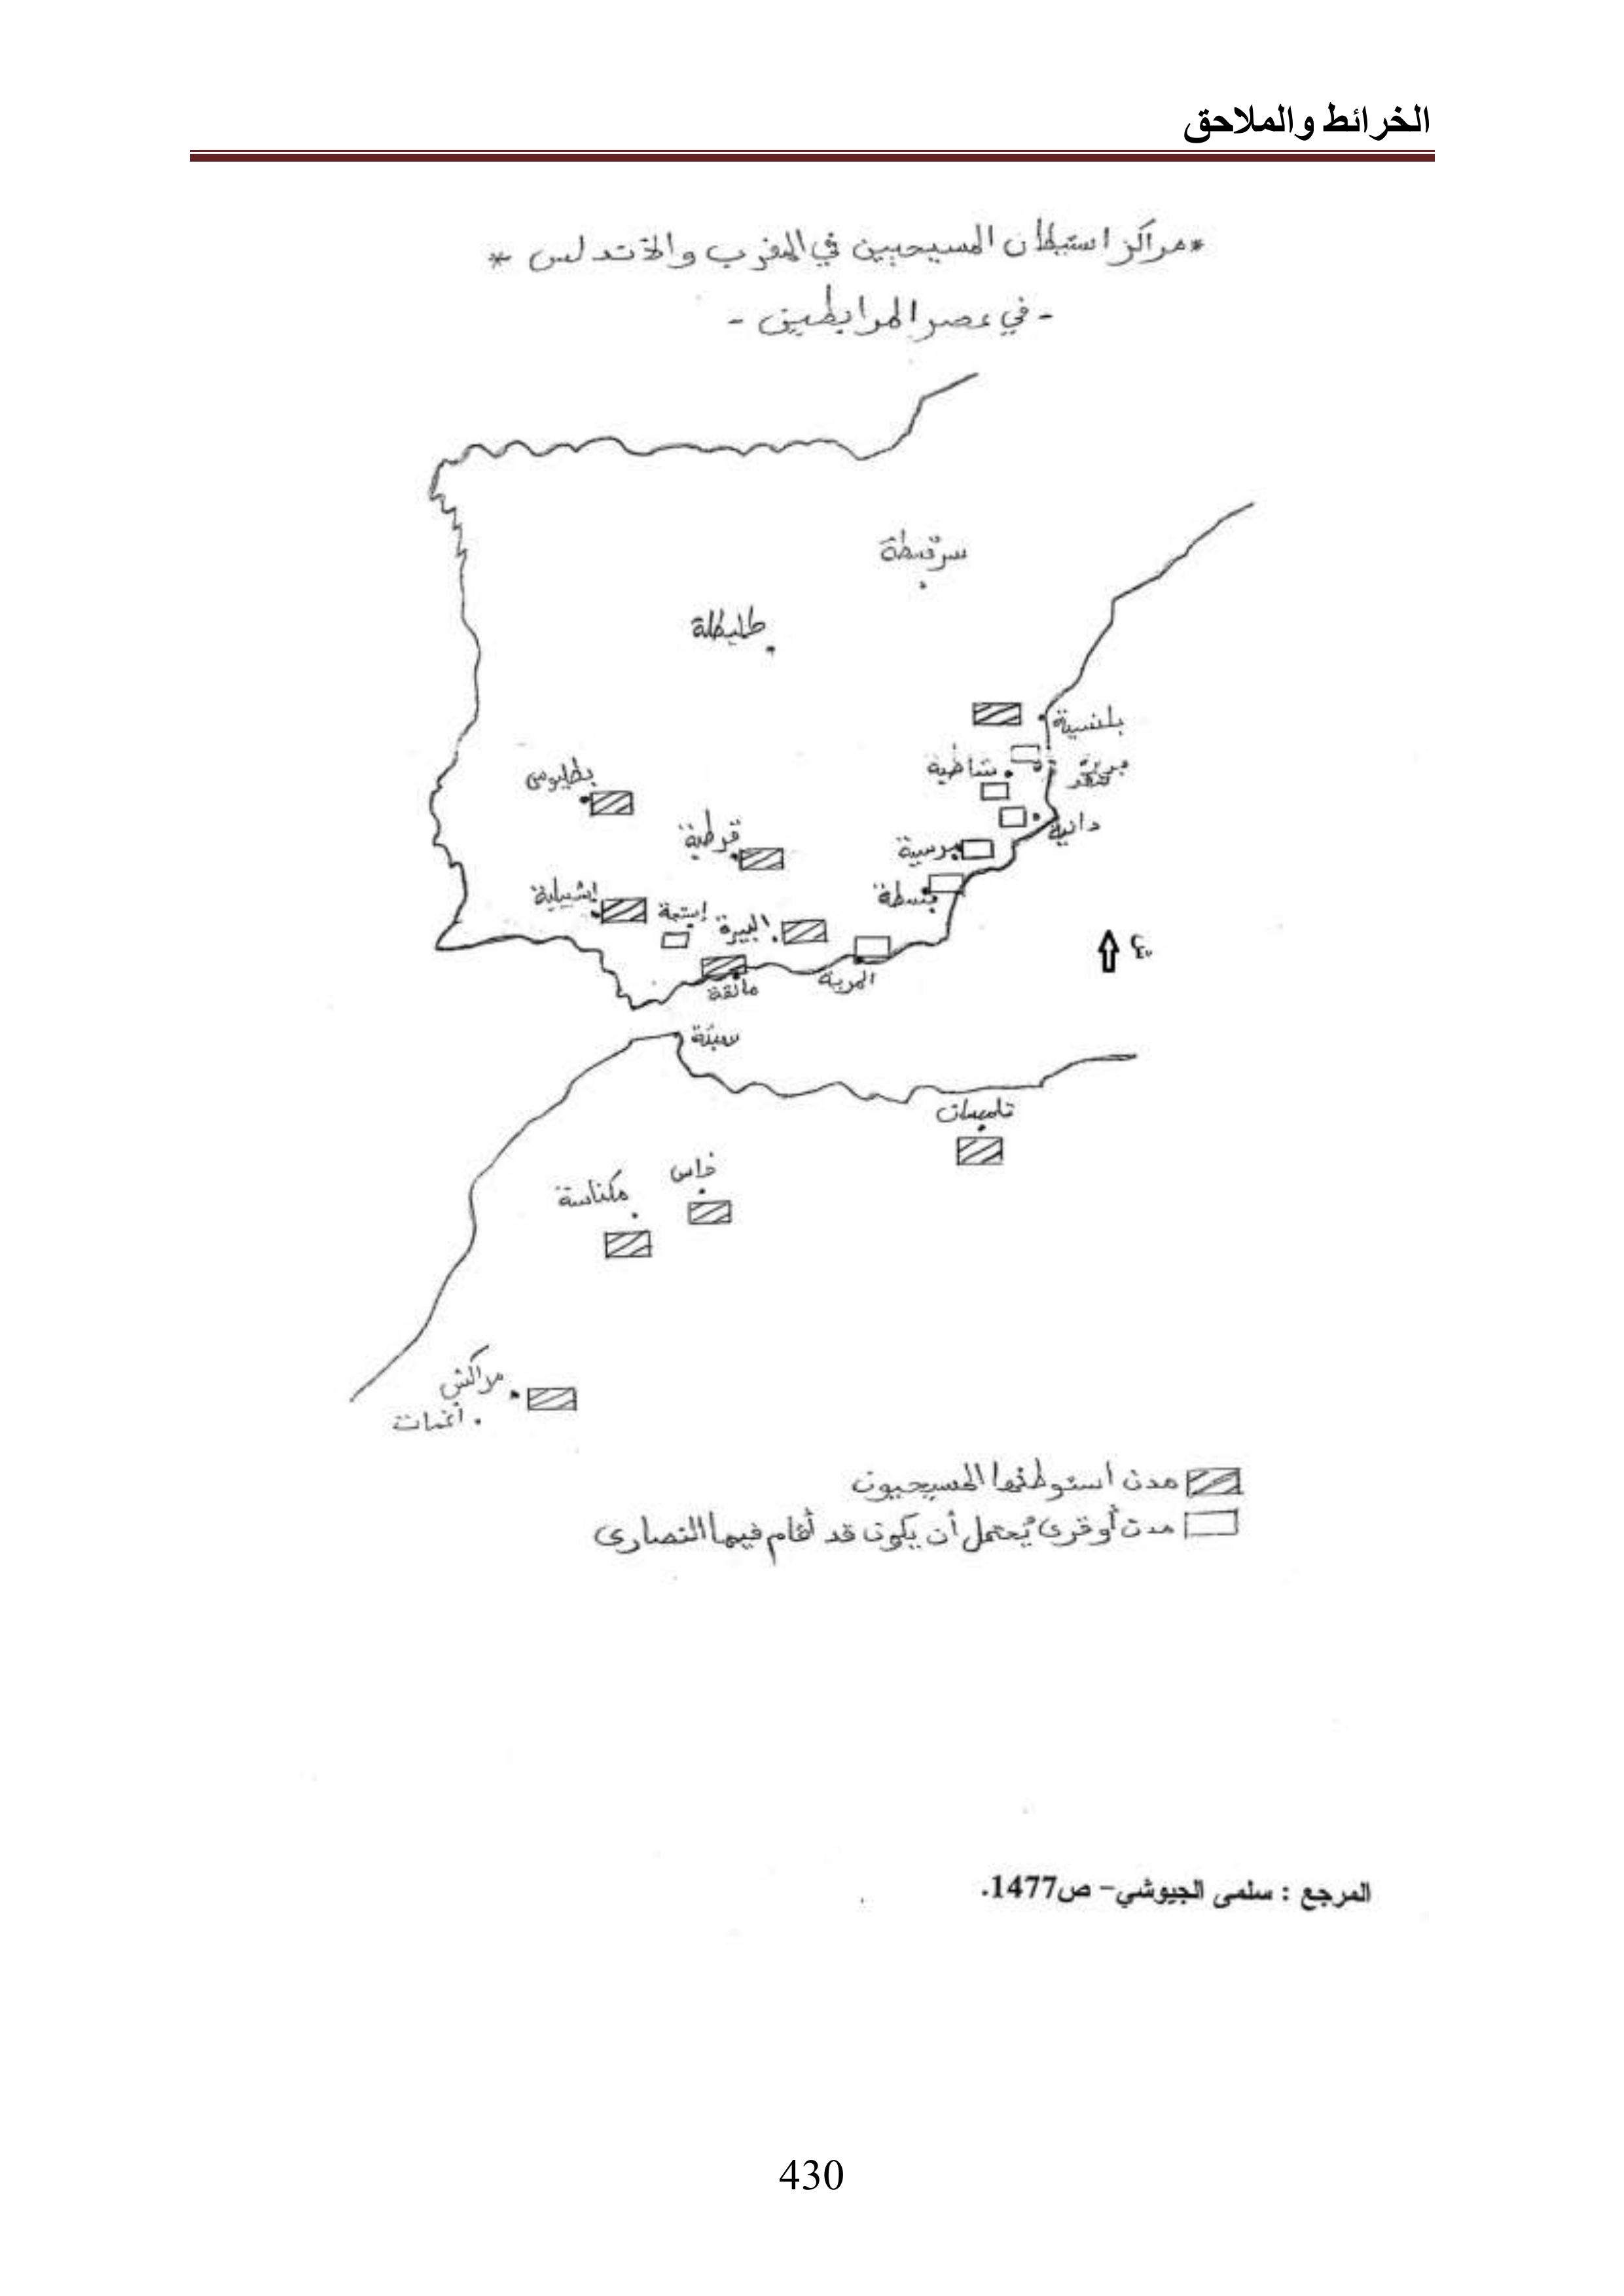 الخرائط والملاحق
*مراكز استيطان المسيحيين في المغرب والأندلس*
- في عصر المرابطين -
سرقسطة
طليطلة
بلنسية
شاطبة
جزيرة شقر
بطليوس
دانية
قرطبة
مرسية
بسطة
إشبيلية
إستجة
البيرة
المرية
مالقة
سبتة
تلمسان
فاس
مكناسة
مراكش
أغمات
مدن استوطنها المسيحيون
مدن أو قرى يُحتمل أن يكون قد أقام فيها النصارى
المرجع : سلمى الجيوشي- ص1477.
430